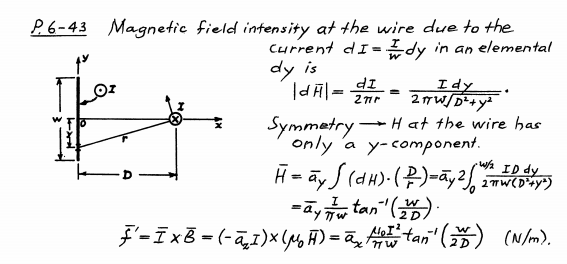 P.6-43 Magnetic field intensity at the wire due to the
current dI = I/w dy in an elemental
dy is
|dH̄| = dI/2πr = I dy/2πw√D²+y² .
Symmetry → H at the wire has
only a y-component.
H̄ = āy ∫ (dH)·(D/r) = āy 2∫₀^{w/2} ID dy/2πw(D²+y²)
= āy I/πw tan⁻¹(w/2D) .
f̄' = Ī × B̄ = (-āz I) × (μ₀ H̄) = āx μ₀I²/πw tan⁻¹(w/2D) (N/m).
y
I
w
O
I
x
y
r
D